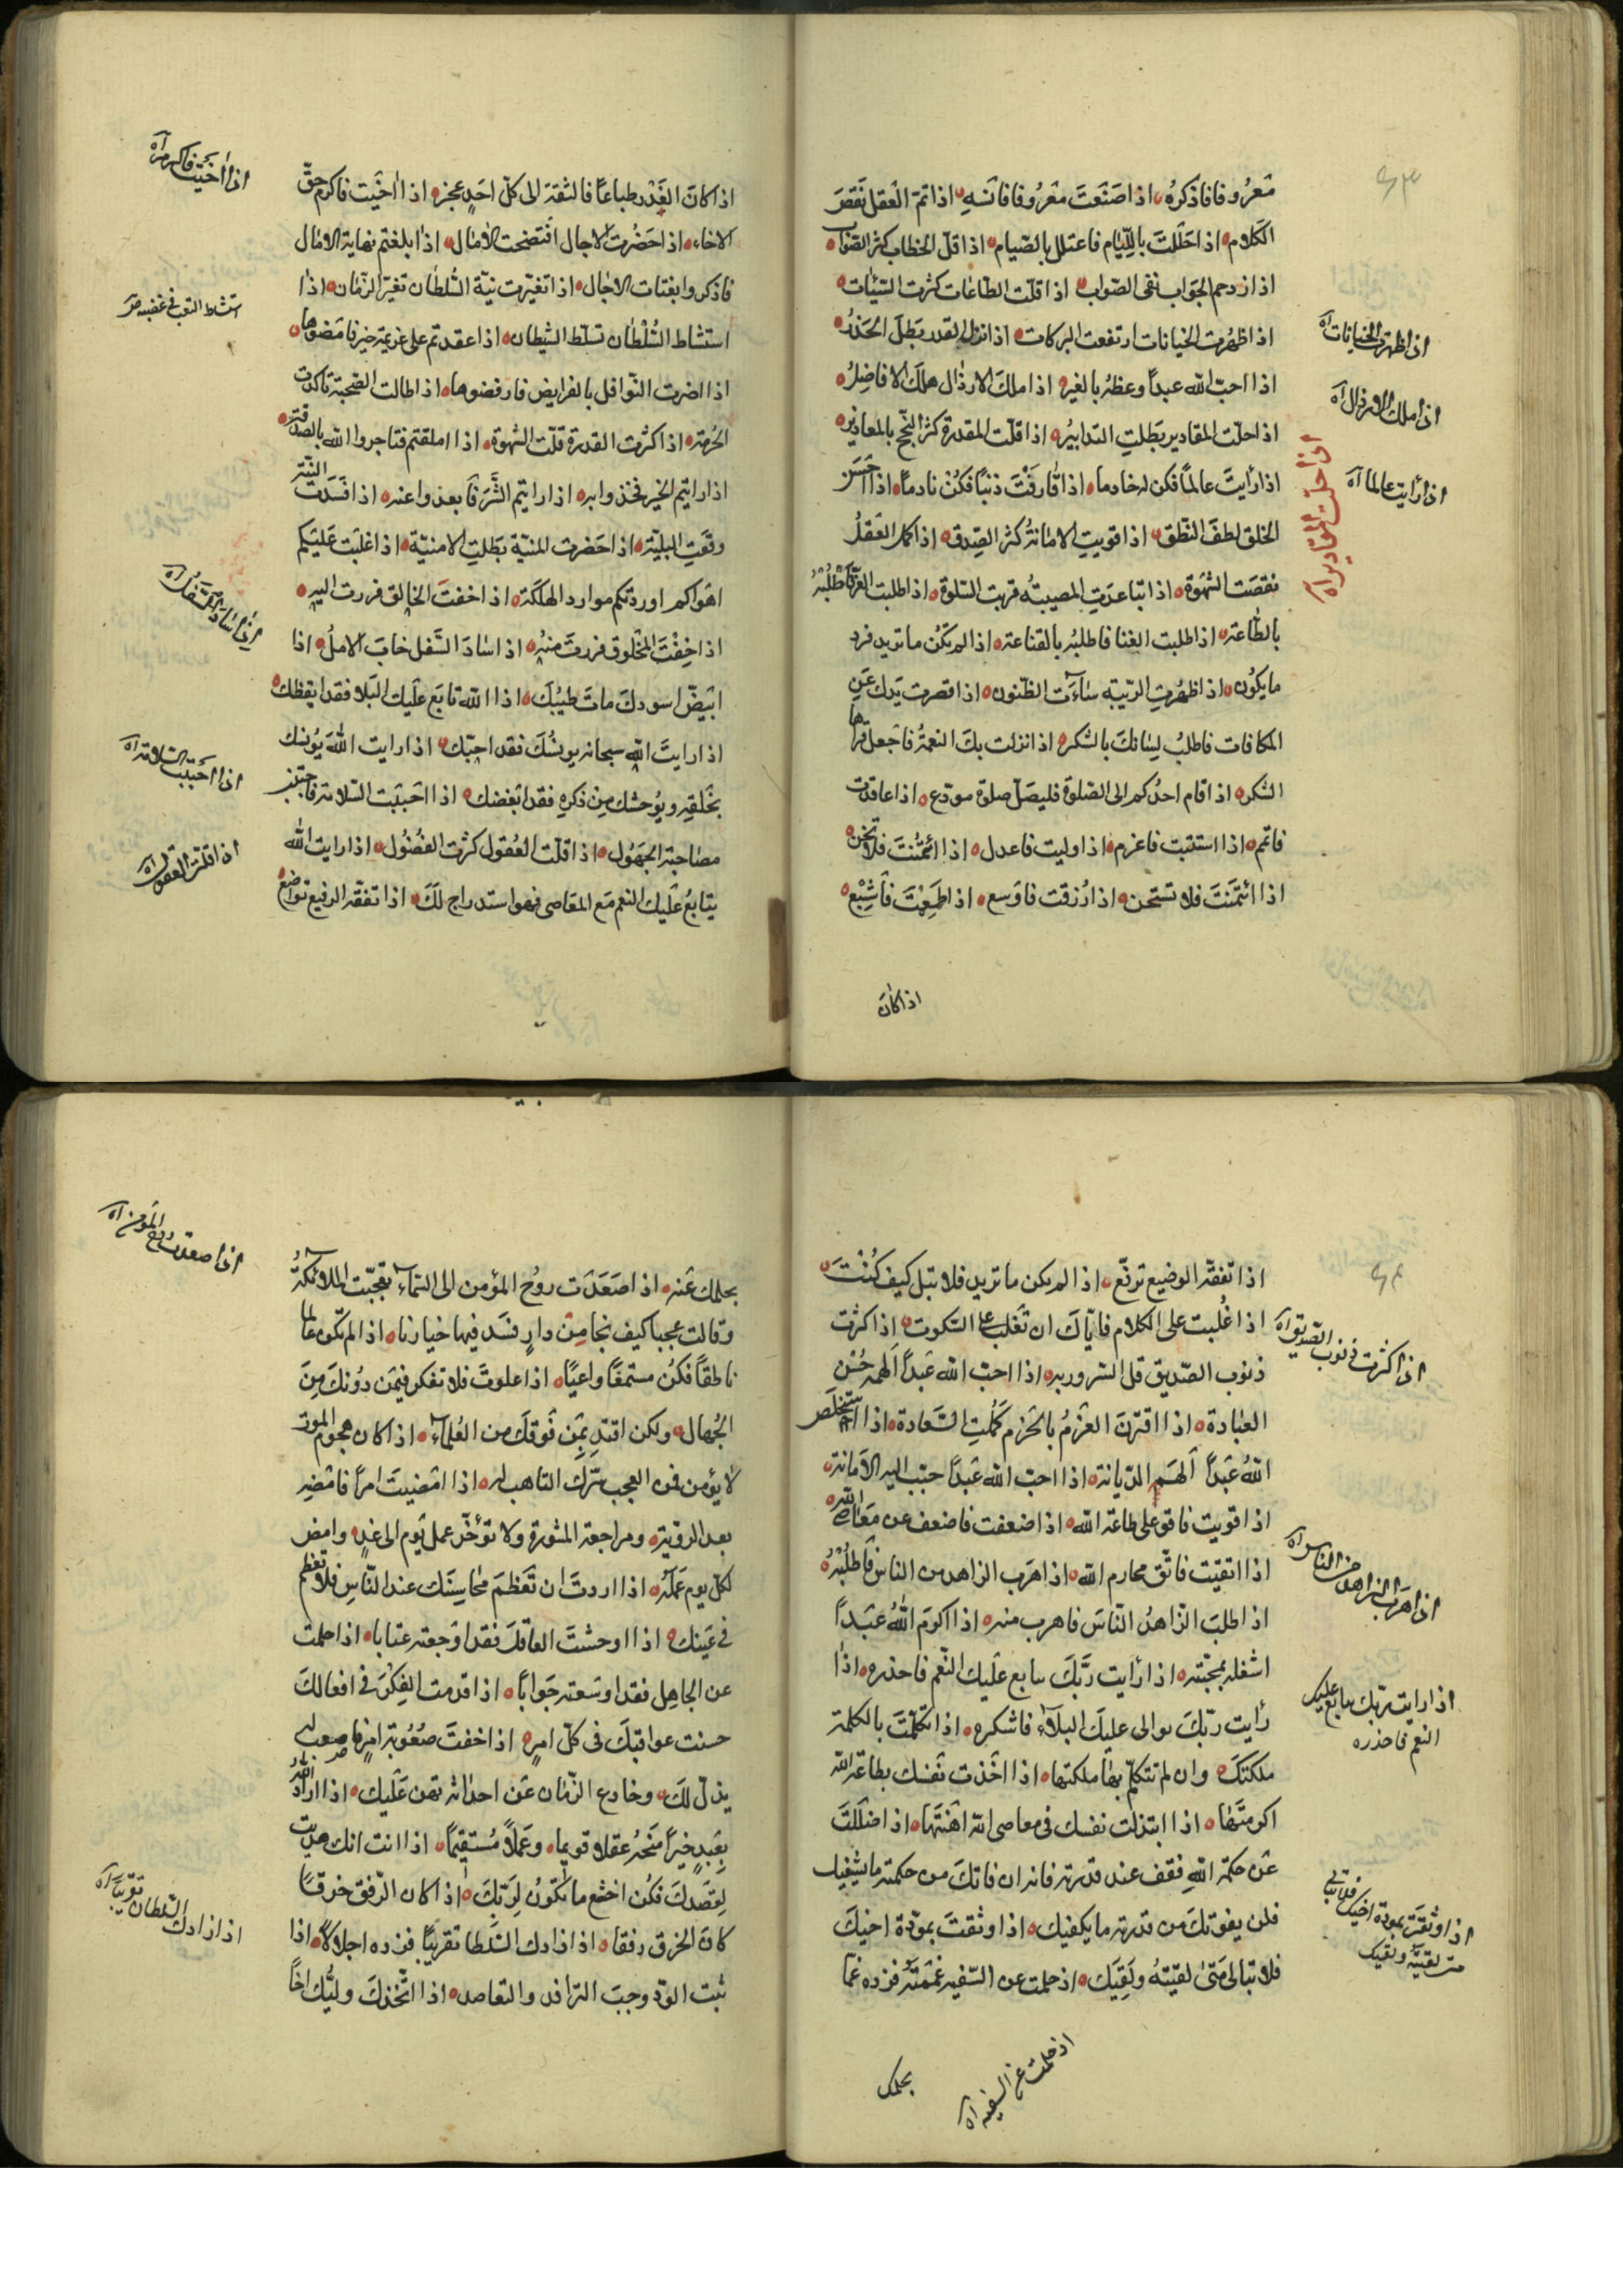 معرُوفا فاذكرهُ اذا صَنَعتَ مَعرُوفا فانسَهِ اذا تمّ العَقل نَقصَ
الكلام اذا حَلَلتَ باللّيام فاعتلل بالصّيام اذا قلّ الخطاب كثر الصّواب
اذا ازدحم الجوَاب نفى الصّواب اذا قلّت الطّاعٰات كثرت السّيٰات
اذا ظهُرت الخيانات ارتفعت البركات اذا نزل القدر بَطلَ الحَذرُ
اذا احبّ الله عبداً وعظهُ بالغير اذا ملك الارذٰال هلَك الافاضِلُ
اذا حلّت المقادير بَطلتِ التدابيرُ اذا قلّت المقدرة كثر النجّح بالمعاذير
اذا رأيتَ عالماً فكن له خادما اذا قارَفتَ ذنبًا فكنُ نادماً اذا احَسَن
الخلق لطفَ النّطق اذا قويتِ الامٰانةُ كثر الصّدق اذا كمل العَقلُ
نقصَت الشهَوة اذا تباعدَتِ المصيبتُه قربت السّلوة اذا طلبت العزّ فاطلُبُهُ
بالطّاعتہ اذا طلبت الغنا فاطلبُه بالقناعته اذا لم يكنُ ما تريد فرد
ما يكوُن اذا ظهُرتِ الرّيبته سٰاءَت الظّنون اذا قصرت يَدكَ عَنِ
المكافات فاطلبُ لِسٰانكَ بالشكر اذا نزلت بكَ النعمةُ فاجعل قراها
الشكر اذا قام احدُكم الى الصّلوة فليصَلّ صلوة مودّع اذا عاقدت
فاتم اذا استنبت فاعزم اذا وليت فاعدل اذا ائتُمنتَ فلا تخن
اذا ائتمَنتَ فلا تستخن اذا رُزقت فاوَسع اذا طَعِمْتَ فاَشبْع
اذا كٰان
اذا ظهرت الخيانات آه
اذا ملك الارذال آه
اذا رأيت عالما آه
اذا حلت المقادير آه
اذا كانَ الغَدْر طباعًا فالثقة الى كلّ احَدٍ عجز اذا اٰخَيت فاكرم حقّ
الاخاء اذا حَضُرت الاجال افتضحت الامٰال اذا بلغتم نهاية الامٰال
فاذكروا بغتات الاجٰال اذا تغيّرت نيّة السُّلطٰان تغيّر الزمٰان اذا
استشاط السُّلْطٰان تسلّط الشيطان اذا عقدتم على عزيمة خيرٍ فامَضوهٰا
اذا اضرت النّوافل بالفرايض فارفضوها اذا طالت الصّحبة تاكدت
الحُرمة اذا كثرت القدرة قلّت الشهوة اذا املقتم فتاجروا الله بالصّدقة
اذا رايتم الخير فخذوا به اذا رايتم الشَّرَ فابعدوا عنه اذا فسَدَت النيّة
وقعَتِ البليّة اذا حَضرت المنيّة بَطلتِ الامنيّة اذا غلبَت عَليكم
اهَواكم اوردَتكم موارد الهلكَة اذا خفتَ الخالق فررت اليه
اذا خِفْتَ المخْلوق فررتَ منهُ اذا سٰادَ السَّفل خابَ الاملُ اذا
ابيَضّ اسودكَ ماتَ طيبُكَ اذا الله تابَع عَليك البَلا فقد ايقظك
اذا رايتَ اللّٰه سبحانه يوٰنسُكَ فقد احبّك اذا رايت اللهَ يوُنسك
بخَلقِه ويُوحشك مِن ذكرِه فقد ابغضك اذا احَببت السّلامة فاجتنب
مصٰاحبة الجهَول اذا قلّت العُقول كثرت الفضُول اذا رايت اللّٰه
يتابعُ عَليك النعم مَع المعَاصي فهو استدراج لكَ اذا تفقّه الرفيع تواضع
اذا اٰخيت فاكرم آه
استشاط التهب فى غضبه صر
اذا ساد السَّفل آه
اذا احببت السّلامة آه
اذا قلت العقول آه
اذا تفقّه الوضيع ترفّع اذا لم يكن ما تريد فلا تبل كيف كُنتَ
اذا غُلبت على الكلام فايّاكَ ان تغَلب على السّكوت اذا كثرت
ذنوب الصّديق قلّ السّرور به اذا احبّ اللّٰه عَبداً الهمه حُسْن
العبٰادة اذا اقترَنَ العَزمُ بالحَزم كمُلتِ السّعَادة اذا استخلَص
اللّٰهُ عَبداً الهَم الدّيانة اذا احبّ اللّٰه عَبداً حبّب اليه الامَانة
اذا قويت فاقو على طاعة اللّٰه اذا ضعفت فاضعف عن معَاصى اللّٰه
اذا اتقيت فاتّق محارم اللّٰه اذا هَرَب الزاهد من الناس فاطلُبُهُ
اذا طلبَ الزاهدُ النّاسَ فاهرب منه اذا اكرَم اللّٰهُ عبَداً
اشغله بمحبّته اذا رأيت ربّكَ يتابع عليك النّعم فاحذره اذا
رأيت ربّكَ يوالى عليكَ البلاءَ فاشكره اذا تكلّمتَ بالكلمة
ملكتكَ وان لم تتكلم بها ملكتها اذا اخذت نفسك بطاعة اللّٰه
اكرمتَها اذا ابتذلت نفسك فى معاصى اللّٰه اهَنتَها اذا ضللتَ
عَن حكمة اللّٰهِ فقف عند قدرته فانه ان فاتكَ من حكمته ما يشفيك
فلن يفوتكَ من قدرته ما يكفيك اذا وثقتَ بمودّة اخيكَ
فلا تبالى متى لقيتهُ ولَقِيَك اذ حلمت عن السّفيه غمَمتَه فزده غمّا
اذ حلمت عن السفيه آه
بحلمك
اذا كثرت ذنوب الصّديق آه
اذا هَرَب الزاهد من الناس آه
اذا رايت ربّك يتابع عليك
النعم فاحذره
اذا وثقت بمودة اخيك فلا تبال
متى لقيته ولقيك
بحلمك عَنه اذا صَعَدَت روحُ المؤمن الى السّمٰاء تعَجّبت الملائكةُ
وقالت عجبا كيف نجٰا مِن دارٍ فسَد فيها خيارنا اذا لم تكون عالما
ناطقاً فكُن مستمعًا واعيًا اذا علوتَ فلا تفكر فيمَن دُونكَ مِنَ
الجُهال ولكن اقتدِ بمَن فوَقكَ من العُلماء اذا كان هجوم الموت
لٰا يؤمن فمن العجب تَرك التاهب له اذا امَضيتَ امرًا فامضِه
بعد الرويّة ومراجعة المشورة ولا تؤخّر عمل يَوم الى غدٍ وامض
لكلّ يوم عَمَلَهُ اذا اردتَ ان تعَظمَ محَاسِنَك عند النّاسِ فلا تعَظم
فى عَينك اذا اوحشتَ العاقلَ فقد اوَجعته عتابا اذا حلمت
عن الجاهِل فقد اوسَعته جَوابًا اذا قدمت الفِكر فى افعالكَ
حسنت عواقبكَ فى كلّ امرٍ اذا خفتَ صُعُوبة امرٍ فاصعب له
يذلّ لكَ وخادع الزّمان عَن احداثه تهن عَليك اذا ارادَ اللّٰه
بعَبدٍ خيراً منَحهُ عقلا قويما وعَملاً مُستقيمًا اذا انت انك هديت
لقصَدكَ فكُن اخشع ما تكُونُ لرَبِّكَ اذا كان الرّفق خرقًا
كانَ الخرق رفقا اذا زادك السّلطان تقريبًا فزده اجلالاً اذا
ثبت الودّ وجبَ الترافد والتعاصد اذا اتّخذكَ وليُّك اخاً
اذا صعدت روح المؤمن آه
اذا زادك السّلطان تقريبًا آه